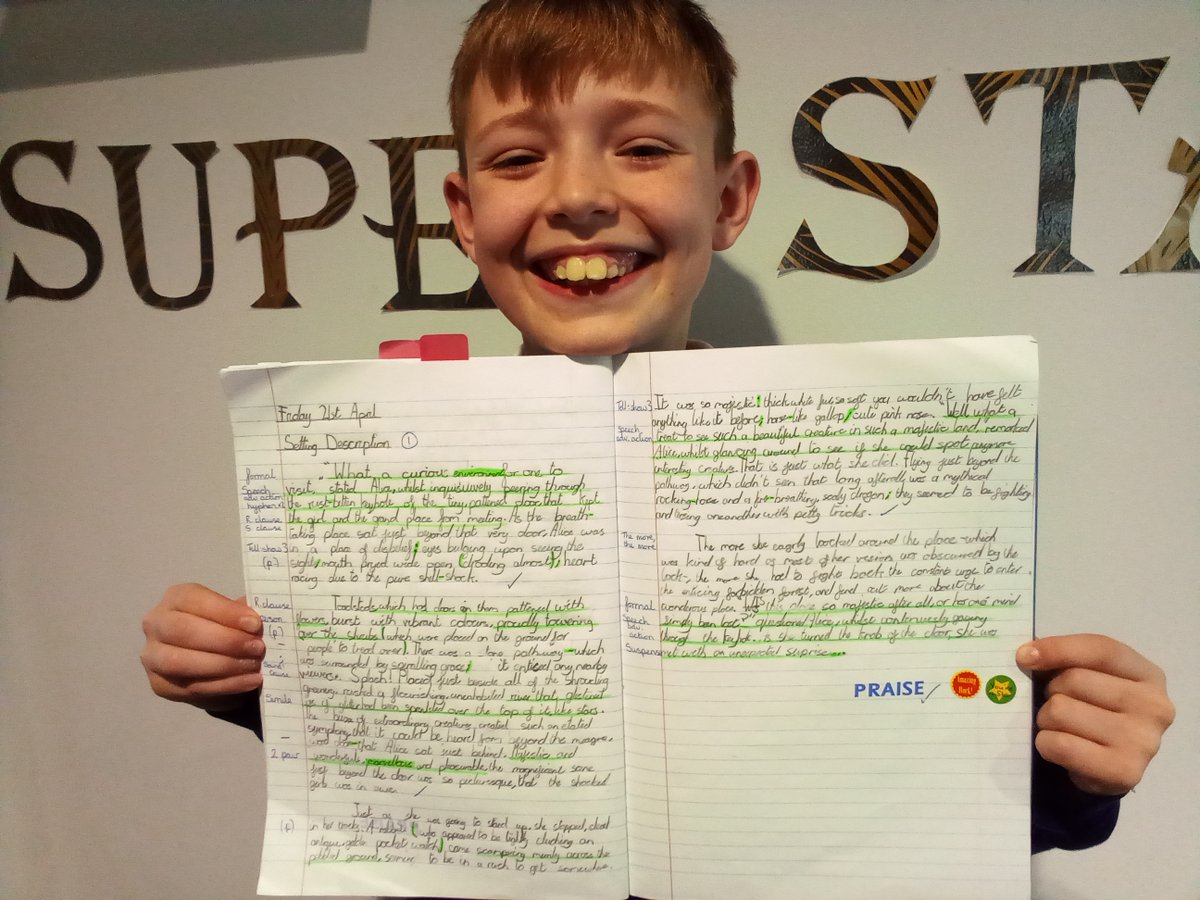 SUPER STA
Friday 21st April
Setting Description 1
formal
"What a curious environment for one to
Speech
visit, stated Alice, whilst inquisitively peering through
adv. action
the rust-bitten keyhole of the tiny, patterned door that kept
hyphen
R. clause
the girl and the grand place from meeting. As the breath-
S clause
taking place sat just beyond that very door, Alice was
Tell-show 3
in a place of disbelief: eyes bulging upon seeing the
(p)
sight; mouth pryed wide open (drooling almost); heart
racing due to the pure shell-shock.
R. clause
Toadstools, which had doors on them patterned with
flowers, burst with vibrant colours, proudly towering
(p)
over the shrubs (which were placed on the ground for
people to tread over). There was a stone pathway - which
was surrounded by sprawling grass; it enticed any nearby
viewers. Splash! Placed just beside all of the shrouding
greenery, rushed a flourishing, uninhabited river that
Simile
of glitter had been sprinkled over the top of it like stars.
The buzz of extraordinary creatures created such an elated
symphony that it could be heard from beyond the
door that Alice sat just behind. Majestic and
wonderful, marvellous and pleasurable, the magnificent scene
just beyond the door was so picturesque, that the shocked
girls was in awe.
Just as she was going to stand up, she stopped, dead
(p)
in her tracks. A rabbit (who appeared to be tightly clutching an
antique, golden pocket watch) came scampering across the
ground, to be in a rush to get somewhere.
Tell-show 3
It was so majestic: thick white fur, so soft you wouldn't have felt
anything like it before; horse-like gallop; cute pink nose. Well, what a
Speech
treat to see such a beautiful creature in such a majestic land, remarked
adv. action
Alice, whilst glancing around to see if she could spot anymore
interesting creatures. That is just what she did. Flying just beyond the
pathway, which didn't seen that long afterall, was a mythical
rocking-horse and a fire-breathing, scaly dragon; they seemed to be fighting
and teasing oneanother with petty tricks.
The more,
The more she eagerly looked around the place - which
the more
was kind of hard as most of her vesion was obscured by the
lock-, the more she had to fight back the constant urge to enter
the enticing forbidden forest, and find out more about the
formal
wondrous place. this place so majestic after all, or has one's mind
Speech
simply been lost?" questioned Alice, whilst continuously gazing
adv.
action
through the keyhole. As she turned the knob of the door, she was
Suspense
met with an unexpected suprise...
PRAISE
Amazing
Work!